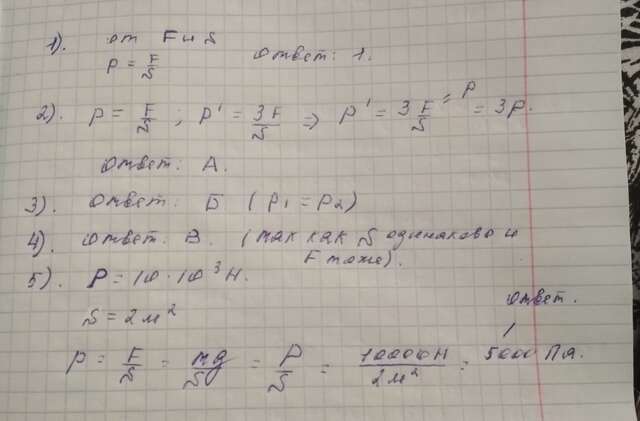 1). от F и S
p = F/S Ответ: 1.
2). p = F/S ; p' = 3F/S ⇒ p' = 3 F/S = p = 3p.
Ответ: А.
3). Ответ: Б (p₁ = p₂)
4). Ответ: В. (так как S одинаково и
F тоже).
5). P = 10 · 10³ Н.
S = 2 м²
Ответ.
p = F/S = mg/S = P/S = 10000 Н/2 м² = 5000 Па.